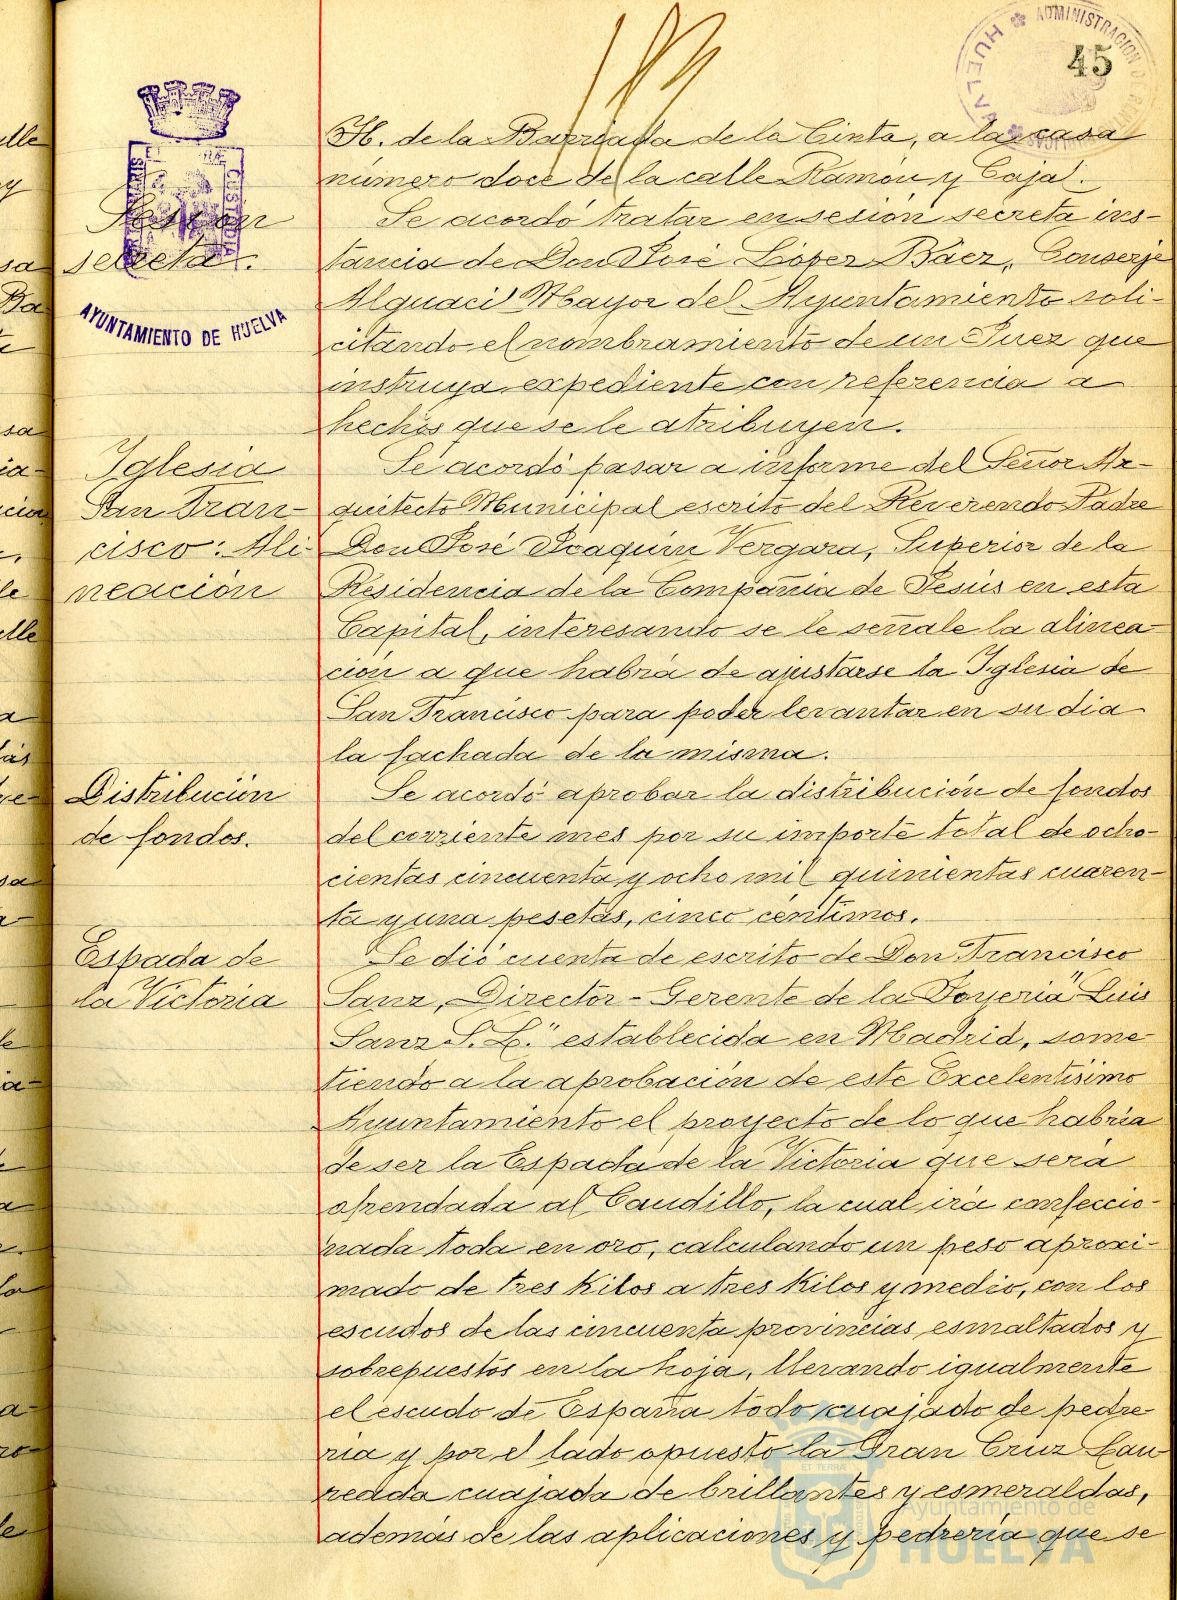 45
ADMINISTRACION D
HUELVA
H. de la Barriada de la Cinta, a la casa
número doce de la calle Ramón y Cajal.
Sesión
secreta.
CUSTODIA
AYUNTAMIENTO DE HUELVA
Se acordó tratar en sesión secreta ins-
tancia de Don José López Báez, Conserje
Alguacil Mayor del Ayuntamiento soli-
citando el nombramiento de un Juez que
instruya expediente con referencia a
hechos que se le atribuyen.
Iglesia
San Fran-
cisco: Ali-
neación
Se acordó pasar a informe del Señor Ar-
quitecto Municipal escrito del Reverendo Padre
Don José Joaquín Vergara, Superior de la
Residencia de la Compañia de Jesús en esta
Capital, interesando se le señale la alinea-
ción a que habrá de ajustarse la Iglesia de
San Francisco para poder levantar en su dia
la fachada de la misma.
Distribución
de fondos.
Se acordó aprobar la distribución de fondos
del corriente mes por su importe total de ocho-
cientas cincuenta y ocho mil quinientas cuaren-
ta y una pesetas, cinco céntimos.
Espada de
la Victoria
Se dió cuenta de escrito de Don Francisco
Sanz, Director-Gerente de la Joyeria "Luis
Sanz S. L." establecida en Madrid, some-
tiendo a la aprobación de este Excelentísimo
Ayuntamiento el proyecto de lo que habría
de ser la Espada de la Victoria que será
ofrendada al Caudillo, la cual irá confeccio-
nada toda en oro, calculando un peso aproxi-
mado de tres kilos a tres kilos y medio, con los
escudos de las cincuenta provincias, esmaltados y
sobrepuestos en la hoja, llevando igualmente
el escudo de España todo cuajado de pedre-
ria y por el lado opuesto la Gran Cruz Lau-
reada cuajada de brillantes y esmeraldas,
además de las aplicaciones y pedrería que se
Ayuntamiento de
HUELVA